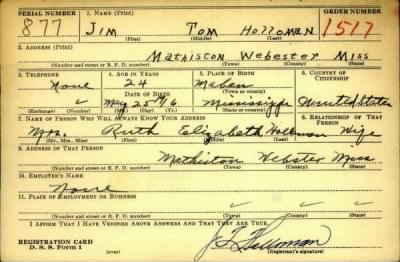 SERIAL NUMBER 1. NAME (Print) ORDER NUMBER
877 Jim Tom Holloman 1517
(First) (Middle) (Last)
2. ADDRESS (Print)
Mathiston Webester Miss
(Number and street or R. F. D. number) (Town) (County) (State)
3. TELEPHONE 4. AGE IN YEARS 5. PLACE OF BIRTH 6. COUNTRY OF CITIZENSHIP
None 24 Maben
DATE OF BIRTH (Town or county)
May 25 1916 Mississippi United States
(Exchange) (Number) (Mo.) (Day) (Yr.) (State or country)
7. NAME OF PERSON WHO WILL ALWAYS KNOW YOUR ADDRESS 8. RELATIONSHIP OF THAT PERSON
Mrs. Ruth Elizabeth Holloman Wife
(Mr., Mrs., Miss) (First) (Middle) (Last)
9. ADDRESS OF THAT PERSON
Mathiston Webster Miss
(Number and street or R. F. D. number) (Town) (County) (State)
10. EMPLOYER'S NAME
None
11. PLACE OF EMPLOYMENT OR BUSINESS
(Number and street or R. F. D. number) (Town) (County) (State)
I AFFIRM THAT I HAVE VERIFIED ABOVE ANSWERS AND THAT THEY ARE TRUE.
REGISTRATION CARD
D. S. S. Form 1 (Registrant's signature)